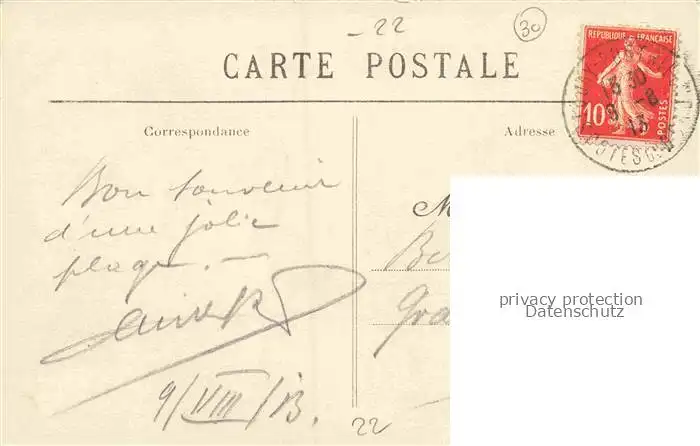 - 22
30
CARTE POSTALE
REPUBLIQUE FRANÇAISE
10
POSTES
13 30
9 -8
13
COTES
Correspondance
Adresse
Bon souvenir
d'une jolie
plage. —
9/VIII/13.
M
Be
Gra
22
privacy protection
Datenschutz